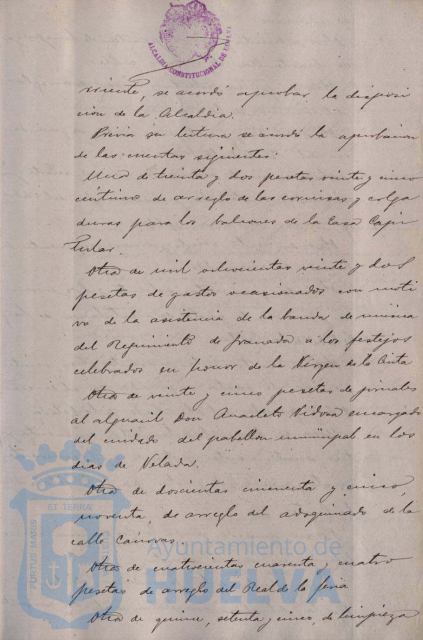 ALCALDIA CONSTITUCIONAL DE
viniente, se acordó aprobar la disposi
cion de la Alcaldia.
Prévia su lectura se acordó la aprobacion
de las cuentas siguientes:
Una de treinta y dos pesetas veinte y cinco
céntimos de arreglo de las cornisas y colga
duras para los balcones de la Casa Capi
tular.
Otra de mil ochocientas veinte y dos
pesetas de gastos ocasionados con moti
vo de la asistencia de la banda de música
del Regimiento de Granada a los festejos
celebrados en honor de la Virgen de la Cinta
Otra de veinte y cinco pesetas de jornales
al alguacil Don Anacleto Vidosa encargado
del cuidado del pabellon municipal en los
dias de Velada.
Otra de doscientas cincuenta y cinco,
noventa, de arreglo del adoquinado de la
calle Cánovas.
Otra de cuatrocientas cuarenta y cuatro
pesetas de arreglo del Real de la feria
Otra de quince, setenta y cinco, de limpieza
PORTUS MARIS ET TERRAE
Ayuntamiento de
HUELVA